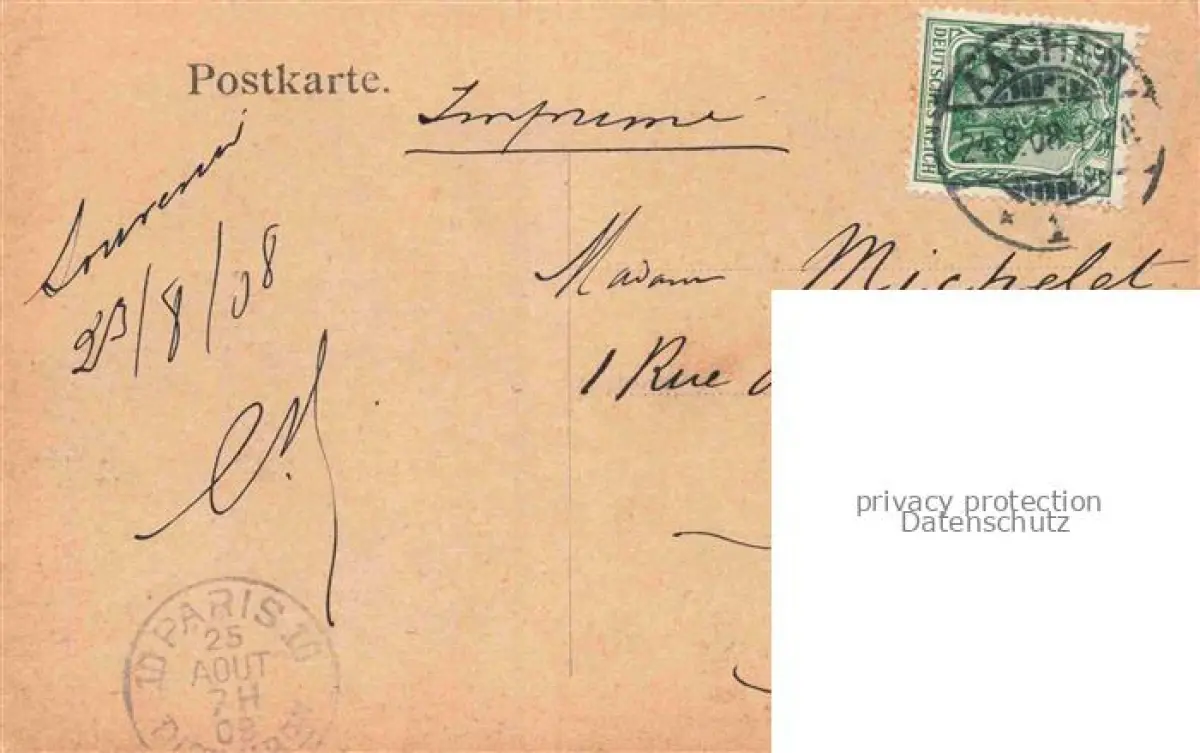 Postkarte.
Imprimé
DEUTSCHES REICH
AACHEN
24.8.08
1
Souvenir
23/8/08
Madam Michelet
1 Rue
PARIS
25
AOUT
7H
08
privacy protection
Datenschutz